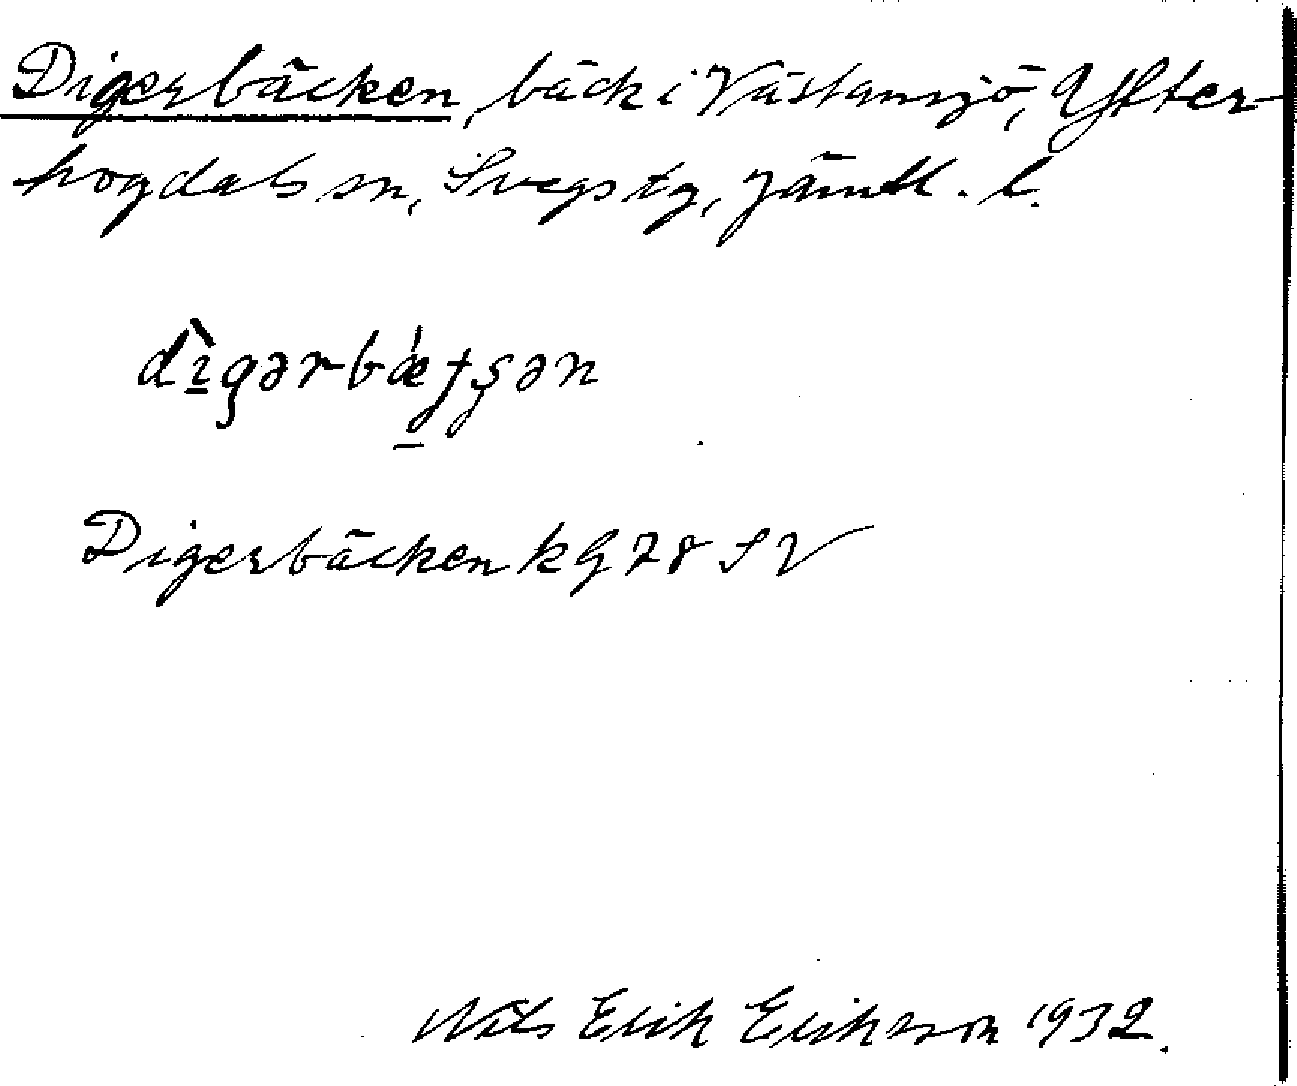 Digerbäcken, bäck i Västansjö, Ytter-
hogdals sn, Svegs tg, Jämtl. l.
dìgərbǽʄʂən
Digerbäcken k G 78 SV
Nils Erik Erikson 1932.